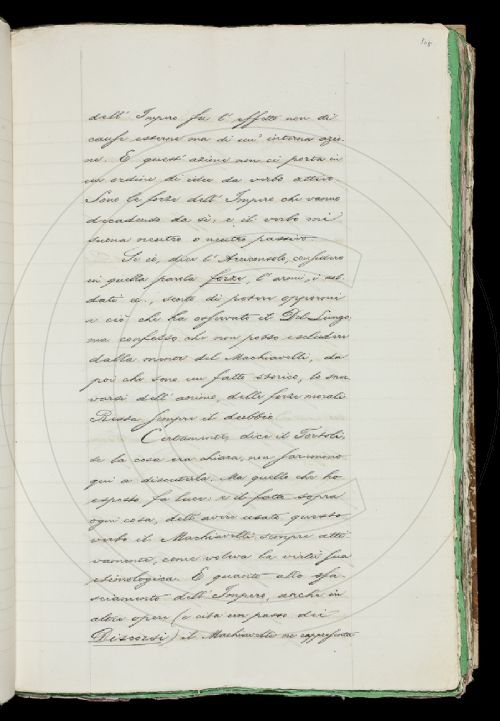 dell' Impero fu l' effetto non di
cause esterne ma di un' interna azio-
ne. E quest' azione non ci porta in
un ordine di idee da verbo attivo.
Sono le forze dell' Impero che vanno
decadendo da sè; e il verbo mi
suona neutro o neutro passivo.
Se io, dice l' Arciconsolo, considero
in quella parola forze, l' armi, i sol-
dati ec., sento di potere oppormi
a ciò che ha osservato il Del Lungo;
ma confesso che non posso escludere
dalla mente del Machiavelli, da
poi che sono un fatto storico, lo sner-
varsi dell' azione, delle forze morali.
Resta sempre il dubbio.
Certamente, dice il Tortoli,
se la cosa era chiara, non saremmo
qui a discuterla. Ma quello che ho
esposto fa luce: e il fatto sopra
ogni cosa, dell' avere usato questo
verbo il Machiavelli sempre atti-
vamente, come voleva la virtù sua
etimologica. E quanto allo sfa-
sciamento dell' Impero, anche in
altre opere (e cita un passo dei
Discorsi) il Machiavelli ne rappresenta